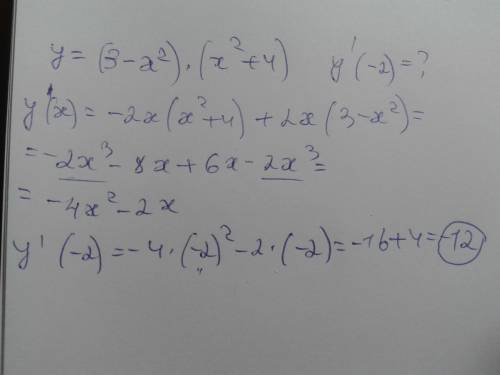 y = (3-x²)·(x²+4)    y'(-2)=?
y'(x) = -2x(x²+4) + 2x(3-x²)=
= -2x³-8x+6x-2x³=
= -4x²-2x
y'(-2)=-4·(-2)²-2·(-2)=-16+4=-12